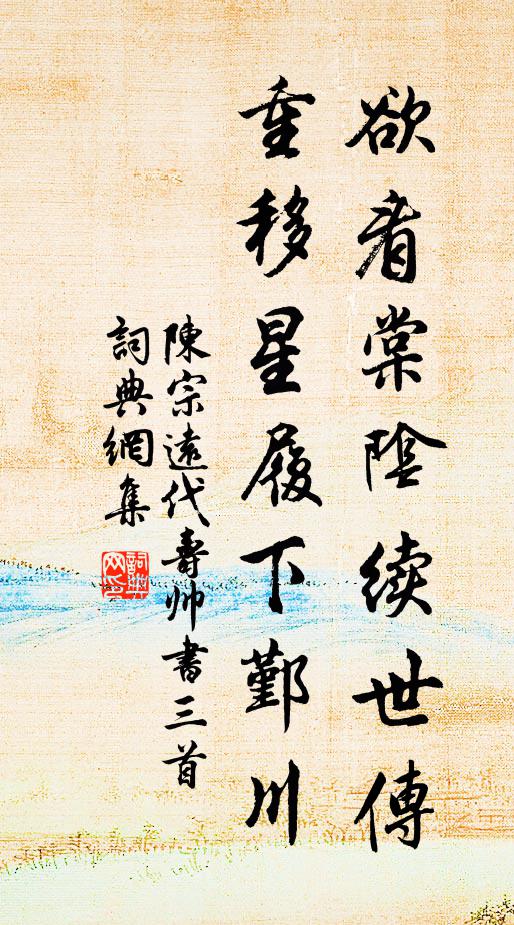 欲看棠陰續世傳
重移星履下鄞川
陳宗遠代壽帥書三首
詞典網集